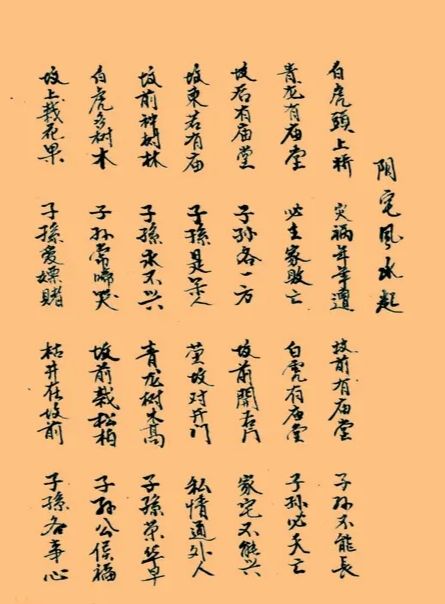 阴宅风水起
白虎頭上桥 灾祸年年遭 坟前有庙堂 子孙不能長
青龙有庙堂 必主家败亡 白虎有庙堂 子孙必夭亡
坟后有庙堂 子孙各一方 坟前開门 家宅不能兴
坟東若有庙 子孫是人 茔坟对开门 私情通外人
坟前树林 子孫永不兴 青龙树木高 子孫荣华
白虎多树木 子孙常啼哭 坟前栽松柏 子孙公侯福
坟上栽花果 子孫爱嫖赌 枯井在坟前 子孫各心